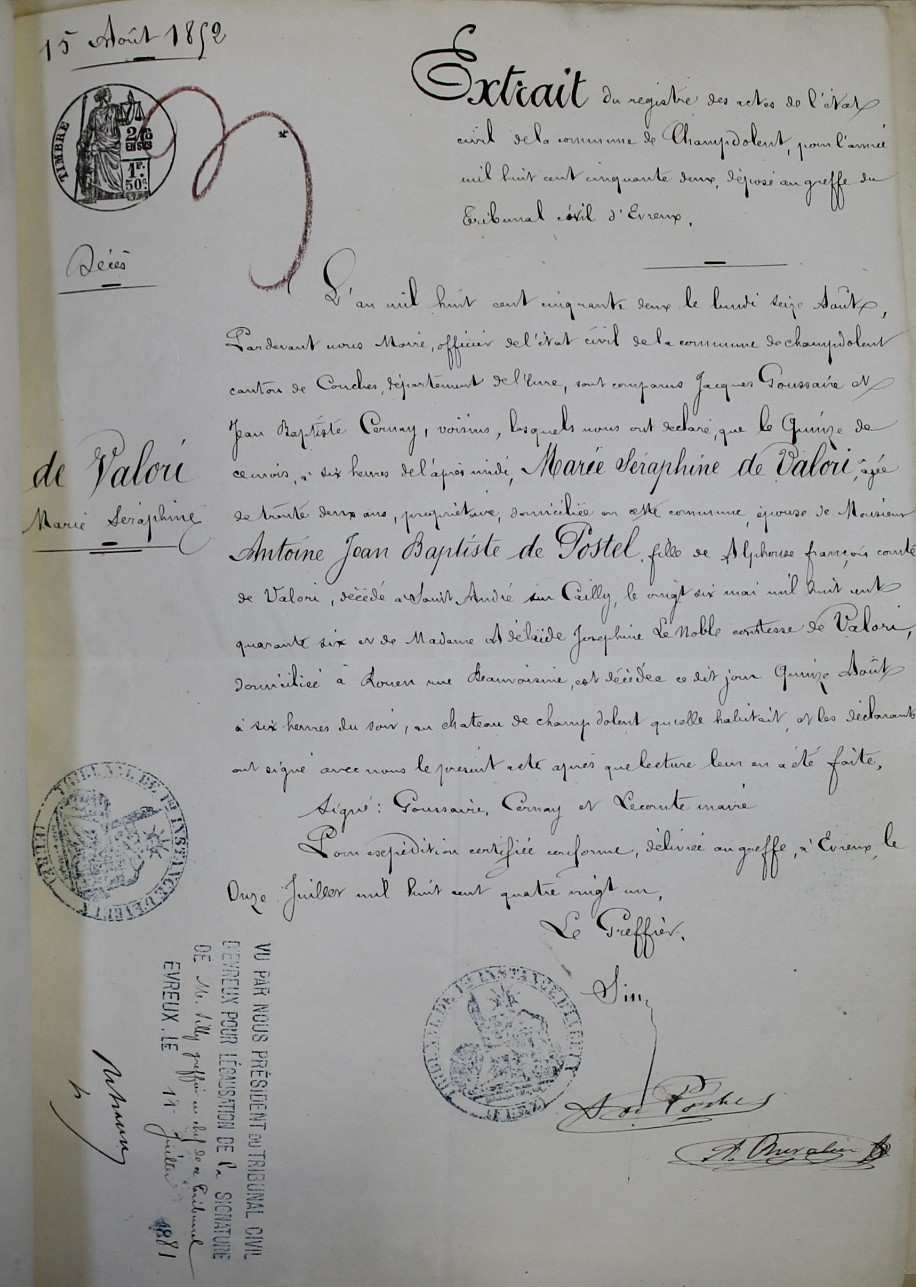 15 Août 1852
TIMBRE
1 Fr.
50 c.
Extrait du registre des actes de l'état
civil de la commune de Champdolent, pour l'année
mil huit cent cinquante deux, déposé au greffe du
Tribunal civil d'Evreux.
Décès
L'an mil huit cent cinquante deux le lundi seize Août,
Pardevant nous Maire, officier de l'état civil de la commune de champdolent
canton de Conches, département de l'Eure, sont comparus Jacques Goussaire et
Jean Baptiste Cernay, voisins, lesquels nous ont déclaré, que le Quinze de
ce mois, à six heures de l'après midi, Marie Séraphine de Valori, âgée
de trente deux ans, propriétaire, domiciliée en cette commune, épouse de Monsieur
Antoine Jean Baptiste de Postel, fille de Alphonse françois comte
de Valori, décédé à Saint André sur Cailly, le vingt six mai mil huit cent
quarante six et de Madame Adélaïde Josephine Le Noble comtesse de Valori,
domiciliée à Rouen rue Beauvoisine, est décédée ce dit jour Quinze Août
à six heures du soir, au chateau de champdolent qu'elle habitait, et les déclarants
ont signé avec nous le présent acte après que lecture leur en a été faite.
de Valori
Marie Séraphine
Signé : Goussaire, Cernay et Lecomte maire
Pour expédition certifiée conforme, délivrée au greffe, à Evreux, le
Onze Juillet mil huit cent quatre vingt un.
Le Greffier.
TRIBUNAL DE 1re INSTANCE D'EVREUX
(EURE)
TRIBUNAL DE 1re INSTANCE D'EVREUX
(EURE)
VU PAR NOUS PRÉSIDENT DU TRIBUNAL CIVIL
D'EVREUX POUR LÉGALISATION DE la SIGNATURE
DE M. greffier en chef de ce Tribunal
EVREUX, LE Juillet 1881